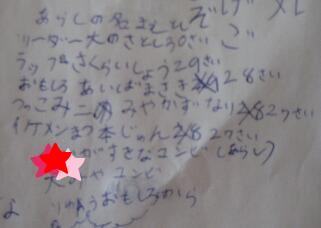 あらしの名まえとし
リーダー大のさとし30さい
ラップさくらいしょう29さい
おもしろあいばまさき28さい
つっこみ二のみやかずなり27さい
イケメンまつ本じゅん27さい
がすきなコンビ(あらし)
大みやコンビ
りゆうおもしろから